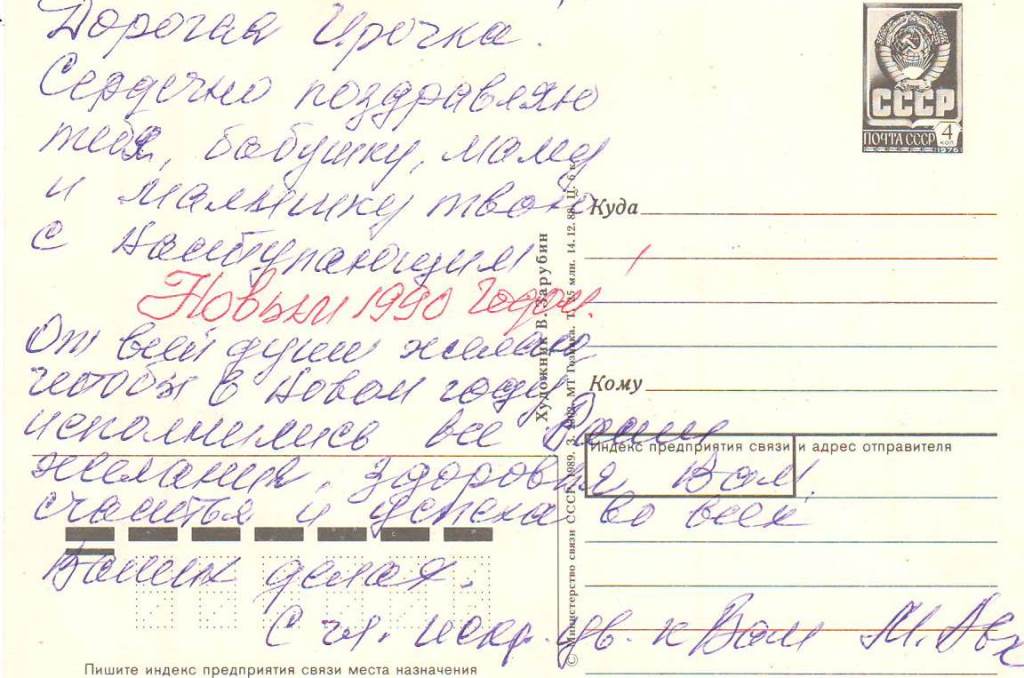 Дорогая Ирочка!
Сердечно поздравляю
тебя, бабушку, маму
и малышку твою
с наступающим
Новым 1990 годом.
От всей души желаю
чтобы в Новом году
исполнились все Ваши
желания, здоровья Вам!
счастья и успеха во всех
Ваших делах.
С ч. искр. ув. к Вам М.
СССР
ПОЧТА СССР 4 коп
1976
Куда
Кому
Индекс предприятия связи и адрес отправителя
Художник В. Зарубин
© Министерство связи СССР. 1989. МТ Гознака. млн. 14.12.88. Ц. 6 к.
Пишите индекс предприятия связи места назначения